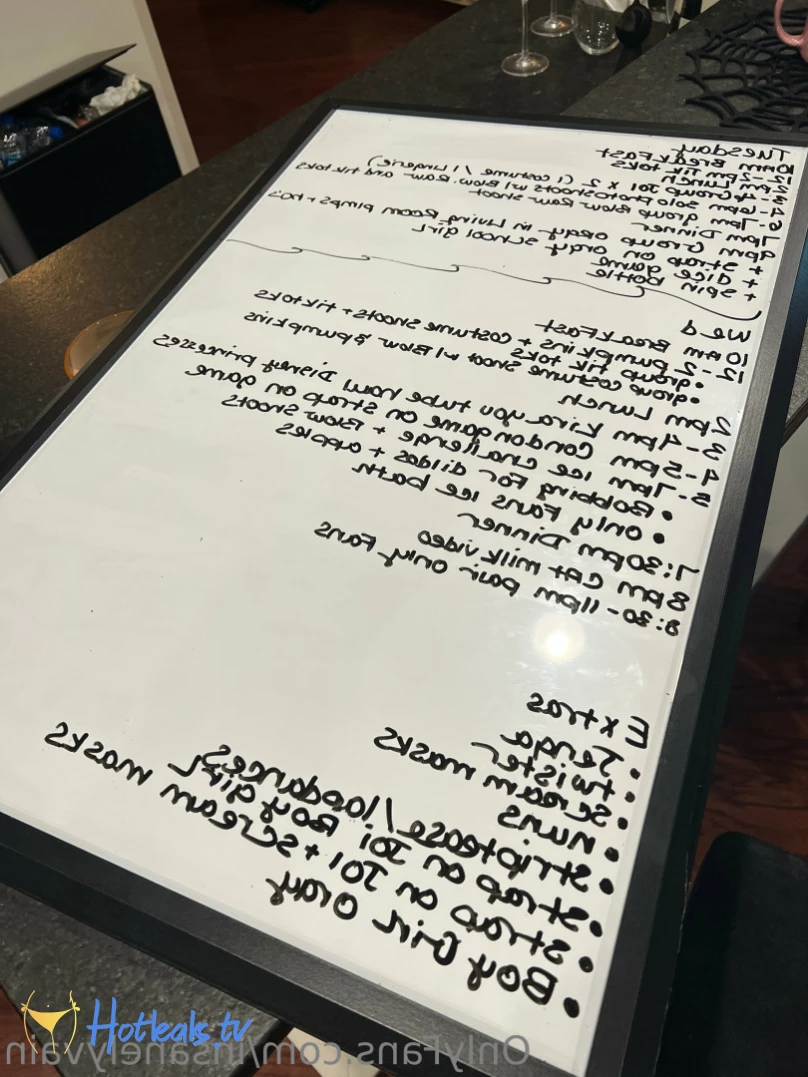 Tuesday
10am Breakfast
12-2pm Tik Toks
2pm Lunch
3-4 Group JOI x 2 (1 costume / 1 Lingerie)
4-6pm solo photoshoots w/ Blow. Raw and tik toks
6-7pm group Blow Raw shoot
7pm Dinner
9pm Group orgy in Living Room pimps + ho's
+ strap on orgy school girl
+ dice game
+ spin bottle
Wed
10am Breakfast
12-2 pumpkins + costume shoots + tiktoks
• group tik toks
• group costume shoot w/ Blow & pumpkins
2pm Lunch
3-4pm Kira you tube haul Disney princesses
4-5pm Condon game on strap on game
5-7pm ice challenge + Blow shoots
• Bobbing for dildos + apples
• Only Fans ice bath
7:30pm Dinner
8pm Cat milk video
8:30-11pm pair only Fans
Extras
• Jenga
• twister
• scream masks
• nuns
• striptease/lapdances
• strap on JOI Boy girl
• strap on JOI + scream masks
• Boy Girl orgy
Hotleaks.tv
OnlyFans.com/insanelyvain